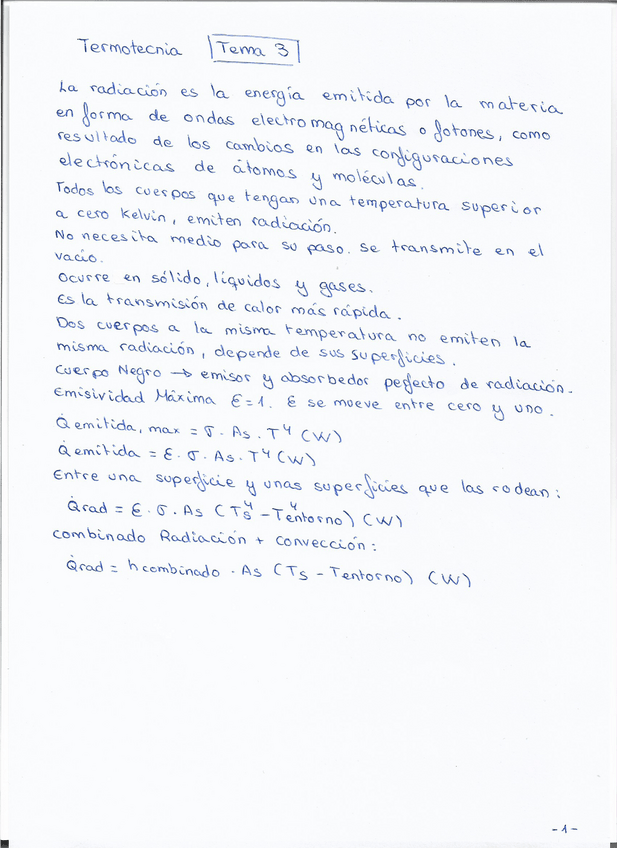 Termotecnia Tema 3
La radiación es la energía emitida por la materia
en forma de ondas electromagnéticas o fotones, como
resultado de los cambios en las configuraciones
electrónicas de átomos y moléculas.
Todos los cuerpos que tengan una temperatura superior
a cero Kelvin, emiten radiación.
No necesita medio para su paso. Se transmite en el
vacío.
Ocurre en sólido, líquidos y gases.
Es la transmisión de calor más rápida.
Dos cuerpos a la misma temperatura no emiten la
misma radiación, depende de sus superficies.
Cuerpo Negro → emisor y absorbedor perfecto de radiación.
Emisividad Máxima ε=1. ε se mueve entre cero y uno.
Q̇ emitida, max = σ · As · T⁴ (W)
Q̇ emitida = ε · σ · As · T⁴ (W)
Entre una superficie y unas superficies que las rodean:
Q̇rad = ε · σ · As (Ts⁴ - Tentorno⁴) (W)
Combinado Radiación + Convección:
Q̇rad = h combinado · As (Ts - Tentorno) (W)
-1-